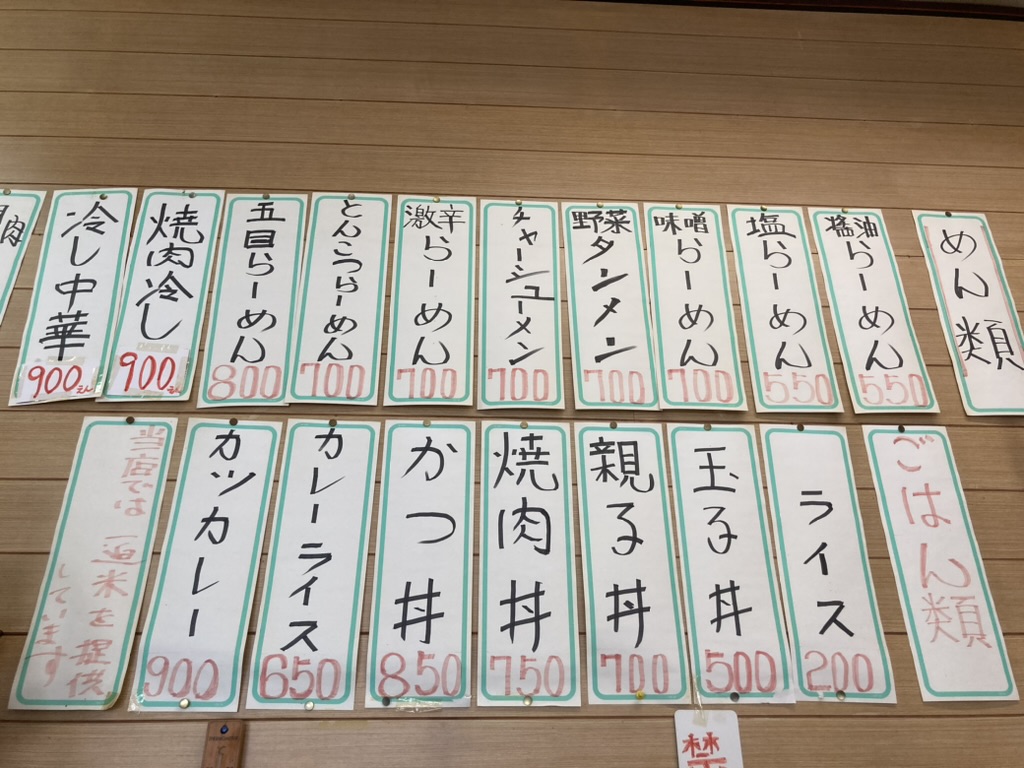 めん類
醤油らーめん
550
塩らーめん
550
味噌らーめん
700
野菜タンメン
700
チャーシューメン
700
激辛らーめん
700
とんこつらーめん
700
五目らーめん
800
焼肉冷し
900
冷し中華
900えん
肉
ごはん類
ライス
200
玉る丼
500
親る丼
700
焼肉丼
750
かつ丼
850
カレーライス
650
カツカレー
900
当店では
米を提供
しています
禁
5